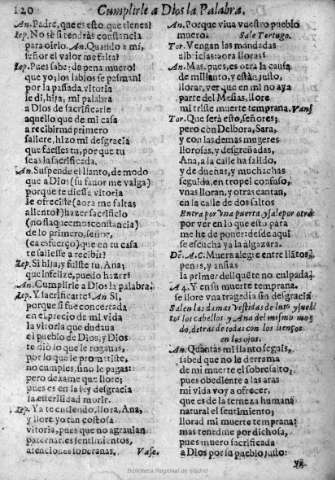 120 Cumplirle a Dios la Palabra.
An. Padre, que es esto, que tienes?
Iep. No sè si tendràs constancia
para oirlo. An. Quando a mi,
señor el valor me falta?
Iep. Pues sabe: de pena muero!
que yo; los labios se pasman!
por la passada vitoria
le di, hija, mi palabra
a Dios de sacrificarle
aquello que de mi casa
a recibirme primero
saliere, hizo mi desgracia
que fuesses tu, porque tu
seas la sacrificada.
An. Suspende el llanto, de modo
que a Dios (su favor me valga)
porque te diesse vitoria
le ofreciste (aora me faltas
aliento) hazer sacrificio
(no flaquèe mi constancia)
de lo primero, señor,
(ea esfuerço) que en tu casa
te saliesse a recibir?
Iep. Si hija, y fuiste tu, Ana;
que infelize, puedo hazer?
An. Cumplirle a Dios la palabra.
Iep. Y sacrificarte? An. Si,
porque si fue concertada
en el precio de mi vida
la vitoria que dudava
el pueblo de Dios; y Dios
te diò lo que le rogavas,
por lo que le prometiste,
no cumples, sino le pagas:
pero dexame que llore;
pues es en la ley desgracia
la esterilidad morir.
Iep. Ya te entiendo, llora, Ana,
y llore yo tan costosa
vitoria, pues que no agravian
paternales sentimientos,
atenciones soberanas. Vase.
An. Porque viva vuestro pueblo
muero. Sale Tortugo.
Tor. Vengan las mondadas
albricias: aora lloras!
An. Mas, pues, es otra la causa
de mi llanto, y està injusto,
llorar, ver que en mi no aya
parte del Mesias, llore
mi triste muerte temprana. Vanse
Tor. Que serà esto, señores;
pero con Delbora, Sara,
y con las demàs mugeres
llorosas, y desgreñadas,
Ana, a la calle ha salido,
y de dueñas, y muchachas
seguida, en tropel confuso,
vnas lloran, y otras cantan,
en la calle de dos saltos
Entra por vna puerta, y sale por otra
por ver en lo que esto para
me he de poner: desde aqui
se escucha ya la algazara.
De. A. C. Muera alegre entre llantos,
penas, y ansias
la primer delinquẽte no culpada.
A 4. Y en su muerte temprana,
se llore vna tragedia sin desgracia
Salen las damas vestidas de luto y suel-
tos los cabellos y Ana del mismo mo-
do, detràs de todas con los lienços
en los ojos.
An. Quantas mi llanto seguis,
sabed que no le derrama
de mi muerte el sobresalto;
pues obediente a las aras
mi vida voy a ofrecer,
que es de la terneza humana
natural el sentimiento;
llorad mi muerte temprana;
mas tenedme por dichosa,
pues muero sacrificada
a Dios por su pueblo justo:
Biblioteca Regional de Madrid